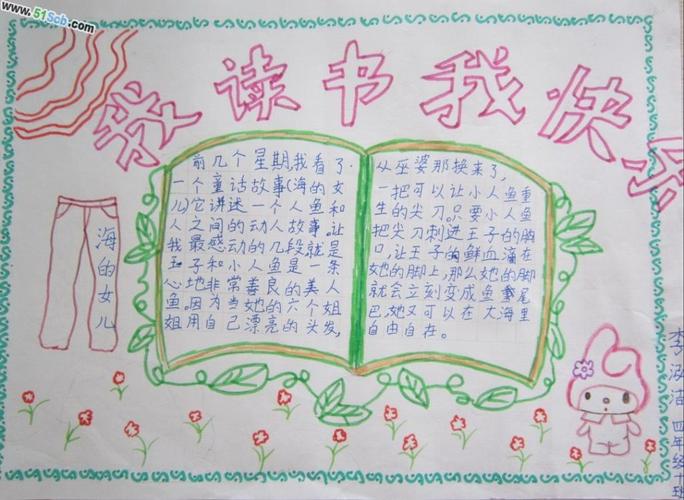 www.51Scb.com
我读书我快乐
海的女儿
前几个星期,我看了
一个童话故事(海的女
儿)它讲述一个人鱼和
人之间的动人故事。让
我最感动的几段就是
王子和小人鱼是一条
心地非常善良的美人
鱼。因为当她的六个姐
姐用自己漂亮的头发,
从巫婆那换来了,
一把可以让小人鱼重
生的尖刀。只要小人鱼
把尖刀刺进王子的胸
口,让王子的鲜血涌在
她的脚上,那么她的脚
就会立刻变成鱼尾
巴,她又可以在大海里
自由自在。
李泓洁 四年级十班